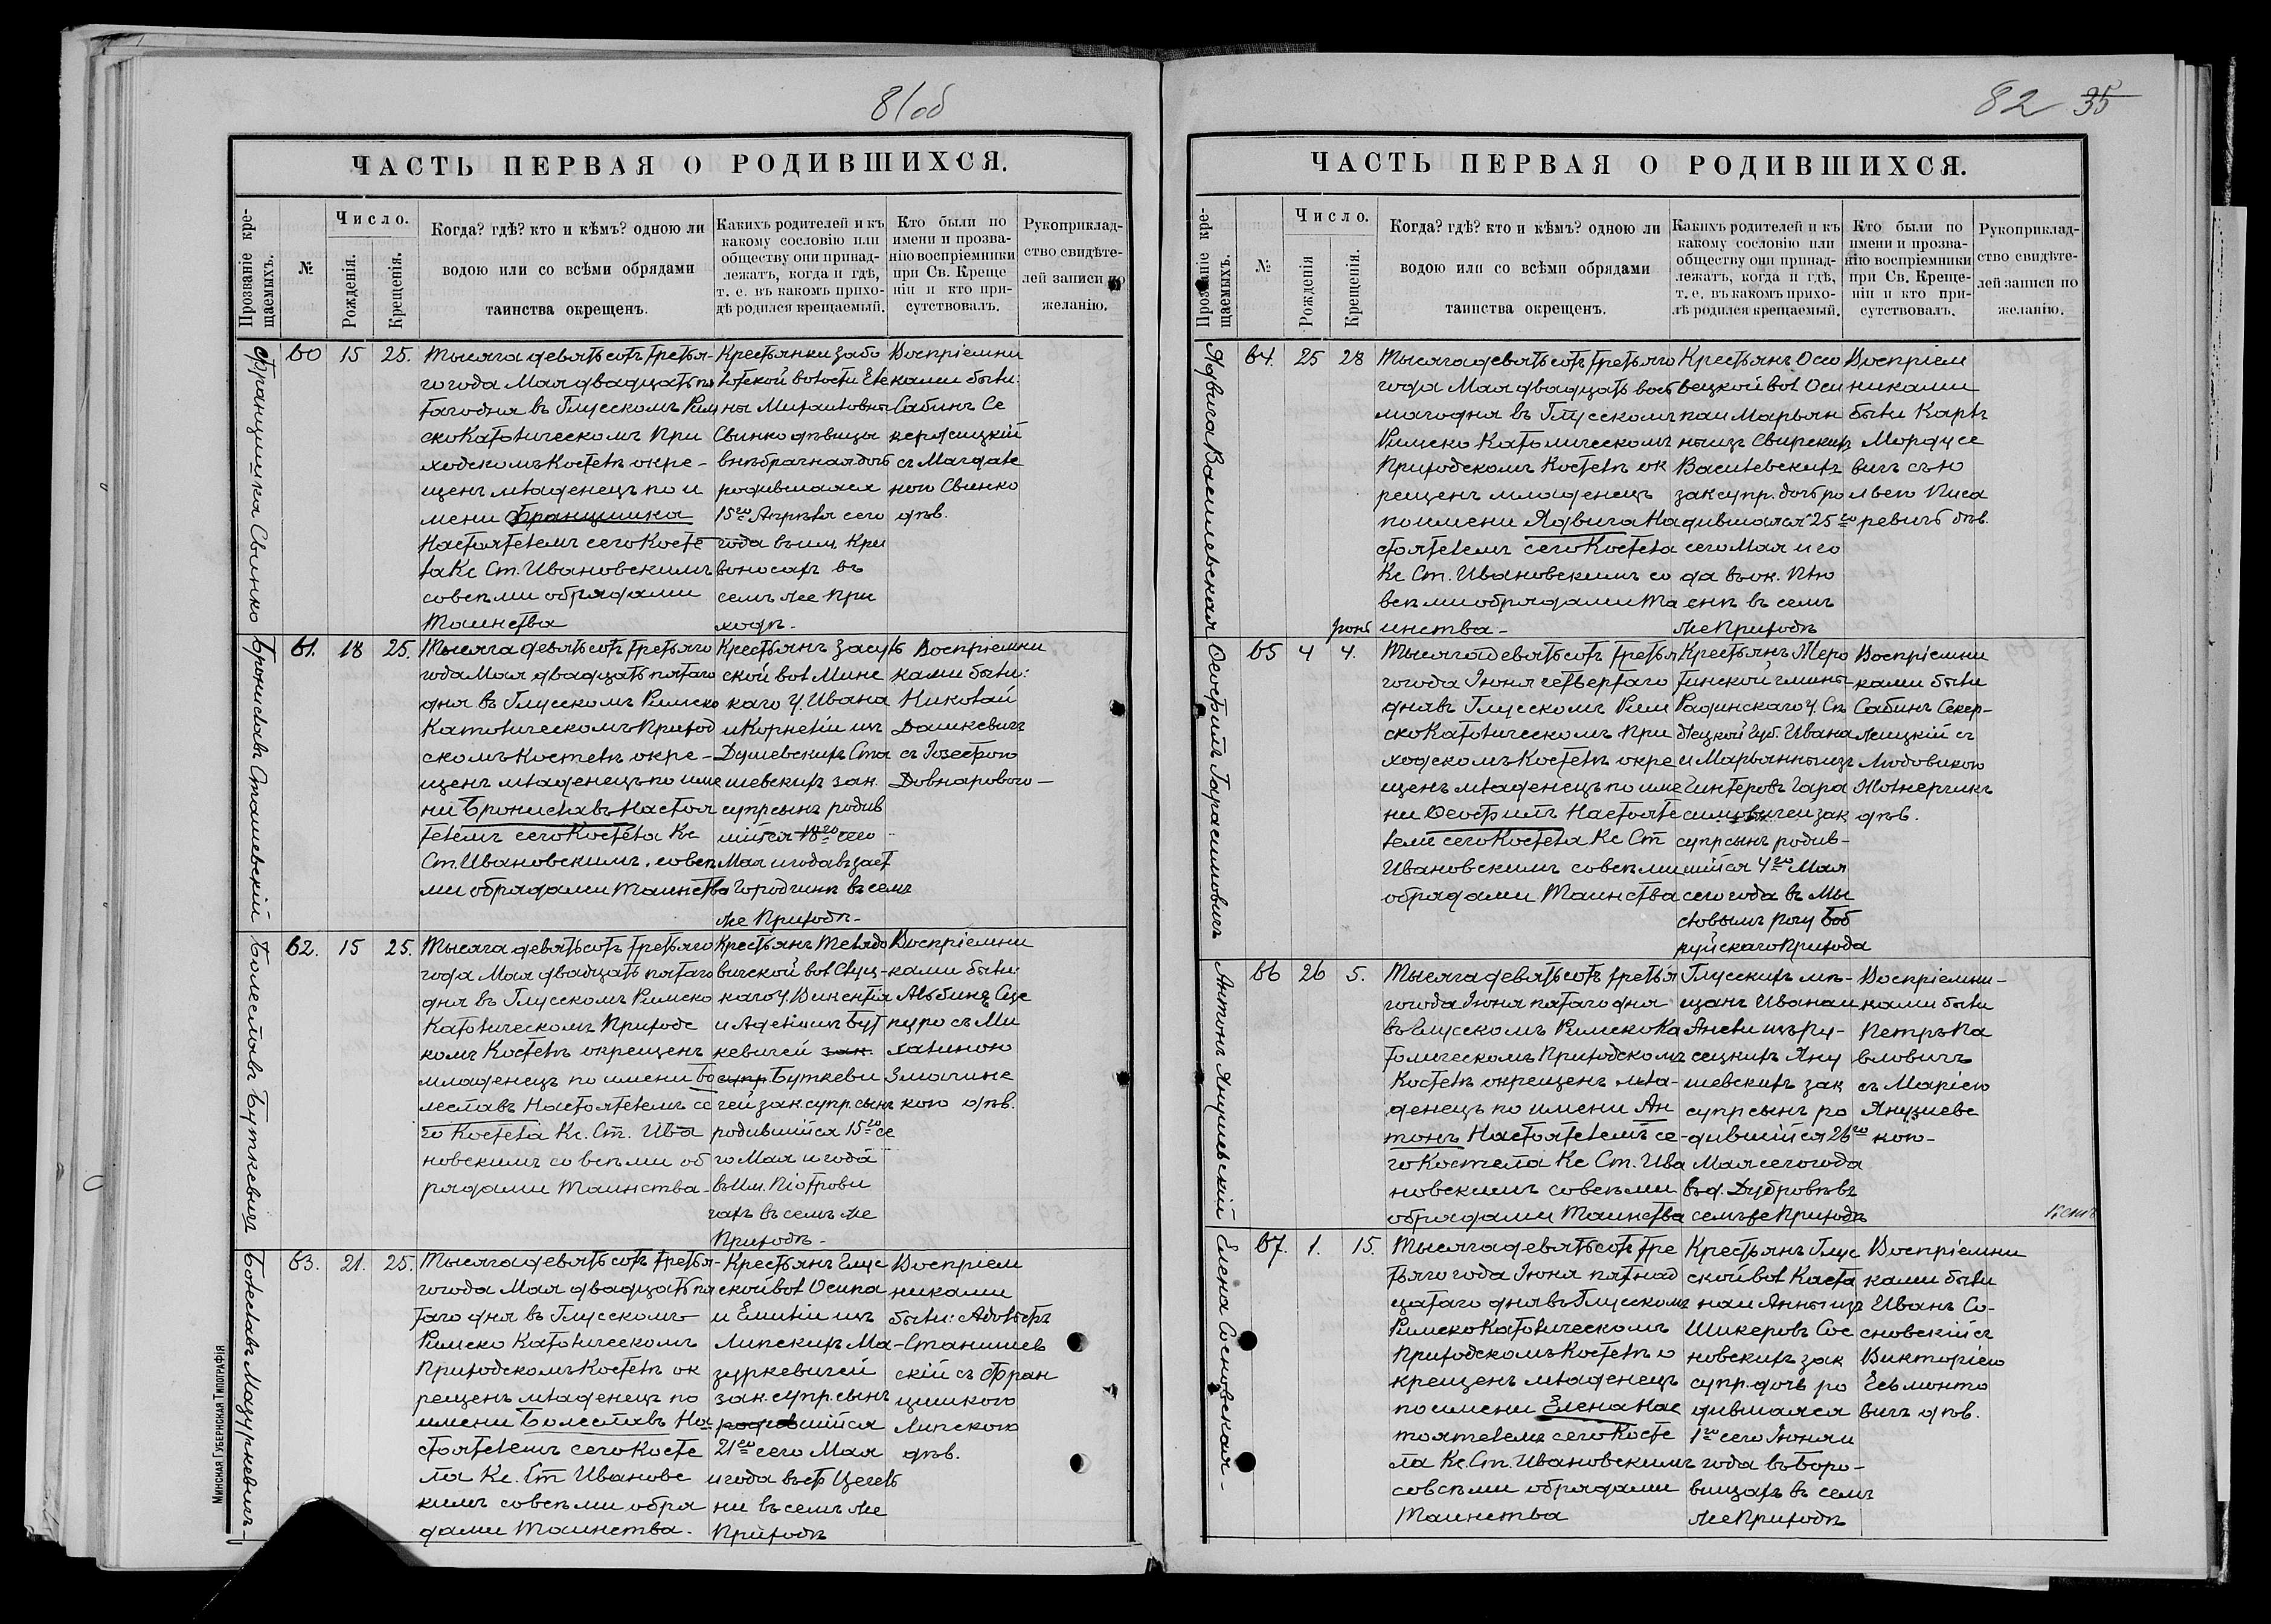 81об
ЧАСТЬ ПЕРВАЯ О РОДИВШИХСЯ.
Прозваніе кре-
щаемыхъ.
№
Число.
Рожденія.
Крещенія.
Когда? гдѣ? кто и кѣмъ? одною ли
водою или со всѣми обрядами
таинства окрещенъ.
Какихъ родителей и къ
какому сословію или
обществу они принад-
лежатъ, когда и гдѣ,
т. е. въ какомъ прихо-
дѣ родился крещаемый.
Кто были по
имени и прозва-
нію воспріемники
при Св. Креще
ніи и кто при-
сутствовалъ.
Рукоприклад-
ство свидѣте-
лей записи по
желанію.
Францишка Свинко
60
15
25.
Тысяча девятьсотъ третья-
го года Мая двадцать пя
таго дня въ Глусскомъ Рим
скоКатолическомъ При
ходскомъ Костелѣ окре-
щенъ младенецъ по и
мени Францишка
Настоятелемъ сего Косте
ла Кс Ст. Ивановскимъ
совсѣми обрядами
Таинства
Крестьянки Забо
лотской волости Еле
ны Михаиловны
Свинко дѣвицы
внѣбрачная дочь
родившаяся
15го Апрѣля сего
года въ им. Кри
воносахъ въ
семъ же При
ходѣ.
Воспріемни
ками были:
Сабинъ Се
кержицкій
съ Магдале
ною Свинко
дѣв.
Брониславъ Сташевскій
61.
18
25.
Тысяча девятьсотъ третьяго
года Мая двадцать пятаго
дня въ Глусскомъ Римско
Католическомъ Приход
скомъ Костелѣ окре-
щенъ младенецъ по име
ни Брониславъ Настоя
телемъ сего Костела Кс
Ст. Ивановскимъ совсѣ
ми обрядами Таинства
Крестьянъ Засуль
ской вол Минс
каго у. Ивана
и Корнеліи изъ
Душевскихъ Ста
шевскихъ зак.
супр сынъ родив
шійся 18го сего
Мая и года въ заст
Городчинѣ въ семъ
же Приходѣ-
Воспріемни
ками были:
Николай
Дашкевичъ
съ Іозефою
Довнаровою-
Болеславъ Буткевичъ
62.
15
25.
Тысяча девятьсотъ третьяго
года Мая двадцать пятаго
дня въ Глусскомъ Римско
Католическомъ Приходс
комъ Костелѣ окрещенъ
младенецъ по имени Бо
леславъ Настоятелемъ се
го Костела Кс. Ст. Ива
новскимъ со всѣми об
рядами Таинства-
Крестьянъ Телядо
вичской вол Слуц-
каго у. Викентія
и Аделіи изъ Бут
кевичей зак.
супр. Буткеви
чей зак. супр. сынъ
родившійся 15го се
го Мая и года
въ им. Піотрови
чахъ въ семъ же
Приходѣ-
Воспріемни
ками были:
Альбинъ Сце
пуро съ Ми
халиною
Змачинс
кою дѣв.
Болеславъ Мазуркевичъ-
63.
21.
25.
Тысяча девятьсотъ третья-
го года Мая двадцать пя
таго дня въ Глусскомъ
Римско Католическомъ
Приходскомъ Костелѣ ок
рещенъ младенецъ по
имени Болеславъ На
стоятелемъ сего Косте
ла Кс. Ст Ивановс
кимъ совсѣми обря
дами Таинства.
Крестьянъ Глус
ской вол Осипа
и Емиліи изъ
Липскихъ Ма-
зуркевичей
зак. супр. сынъ
родившійся
21го сего Мая
и года въ ф Цегель
ни въ семъ же
Приходѣ
Воспріем
никами
были: Адольфъ
Станишев
скій съ Фран
цишкою
Липскою
дѣв.
Минская Губернская Типографія
82 35
ЧАСТЬ ПЕРВАЯ О РОДИВШИХСЯ.
Прозваніе кре-
щаемыхъ.
№
Число.
Рожденія
Крещенія.
Когда? гдѣ? кто и кѣмъ? одною ли
водою или со всѣми обрядами
таинства окрещенъ.
Какихъ родителей и къ
какому сословію или
обществу они принад-
лежатъ, когда и гдѣ,
т. е. въ какомъ прихо-
лѣ родился крещаемый.
Кто были по
имени и прозва-
нію воспріемники
при Св. Креще-
ніи и кто при-
сутствовалъ.
Рукоприклад-
ство свидѣте-
лей записи по
желанію.
Ядвига Василевская
64.
25
28
Тысяча девятьсотъ третьяго
года Мая двадцать вось
мого дня въ Глусскомъ
Римско Католическомъ
Приходскомъ Костелѣ ок
рещенъ младенецъ
по имени Ядвига На
стоятелемъ сего Костела
Кс Ст. Ивановскимъ со
всѣми обрядами Та
инства-
Крестьянъ Осо
вецкой вол Оси
па и Марьян
ны изъ Свирскихъ
Василевскихъ
зак супр. дочь ро
дившаяся 25го
сего Мая и го
да въ ок. Плю
снѣ въ семъ
же Приходѣ
Воспріем
никами
были Карлъ
Мордусе
вичъ съ Ю
ліею Писа
ревичъ дѣв.
Ѳеофилъ Гарасимовичъ
65
4
Іюнь
4.
Тысяча девятьсотъ третья
го года Іюня четвертаго
дня въ Глусскомъ Рим
скоКатолическомъ При
ходскомъ Костелѣ окре
щенъ младенецъ по име
ни Ѳеофилъ Настояте
лемъ сего Костела Кс Ст
Ивановскимъ совсѣми
обрядами Таинства
Крестьянъ, Жеро
тинской гмины
Радинскаго у. Сѣ
длецкой губ. Ивана
и Марьянны изъ
Гинтеровъ Гара
симовичей зак
супр сынъ родив-
шійся 4го Мая
сего года въ Мы
словымъ рогу Боб
руйскаго Прихода
Воспріемни
ками были
Сабинъ Секер-
жицкій съ
Людовикою
Жолнерчикъ
дѣв.
Антонъ Янушевскій
66
26
5.
Тысяча девятьсотъ третья
го года Іюня пятаго дня
въ Глусскомъ РимскоКа
толическомъ Приходскомъ
Костелѣ окрещенъ мла-
денецъ по имени Ан
тонъ Настоятелемъ се-
го Костела Кс Ст. Ива
новскимъ совсѣми
обрядами Таинства
Глусскихъ мѣ-
щанъ Ивана и
Анели изъ Ру-
сецкихъ Яну
шевскихъ зак
супр сынъ ро
дившійся 26го
Мая сего года
въ д. Дубровѣ въ
семъ же Приходѣ
Воспріемни-
ками были
Петръ Па
вловичъ
съ Маріею
Янушевс
кою-
Елена Сосновская-
67.
1.
15.
Тысяча девятьсотъ тре
тьяго года Іюня пятнад
цатаго дня въ Глусскомъ
РимскоКатолическомъ
Приходскомъ Костелѣ о
крещенъ младенецъ
по имени Елена Нас
тоятелемъ сего Косте
ла Кс. Ст. Ивановскимъ
совсѣми обрядами
Таинства
Крестьянъ Глус
ской вол Каета
на и Анны изъ
Шикеровъ Сос
новскихъ зак
супр. дочь ро
дившаяся
1го сего Іюня и
года въ Горо-
вищахъ въ семъ
же Приходѣ
Воспріемни
ками были
Иванъ Со-
сновскій съ
Викторіею
Ельмонто
вичъ дѣв.